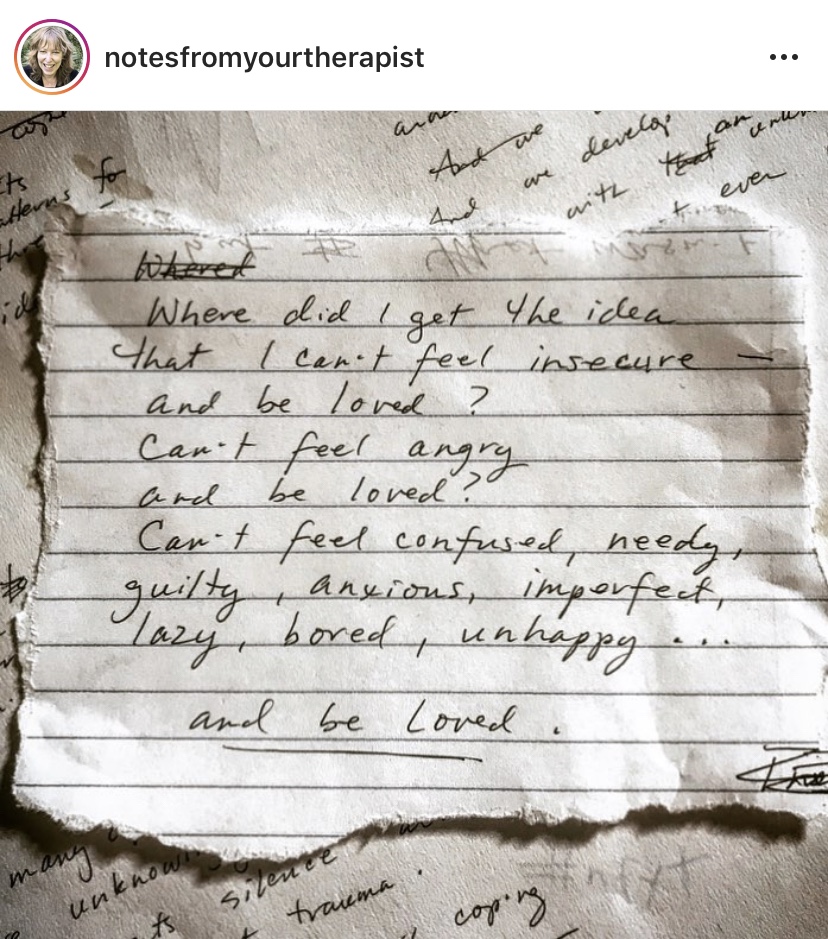 notesfromyourtherapist
and we
And we develop an
with that
And
even
for
Whered
Where did I get the idea
that I can't feel insecure —
and be loved ?
Can't feel angry
and be loved?
Can't feel confused, needy,
guilty, anxious, imperfect,
lazy, bored, unhappy ...
and be Loved.
many
silence
trauma.
coping